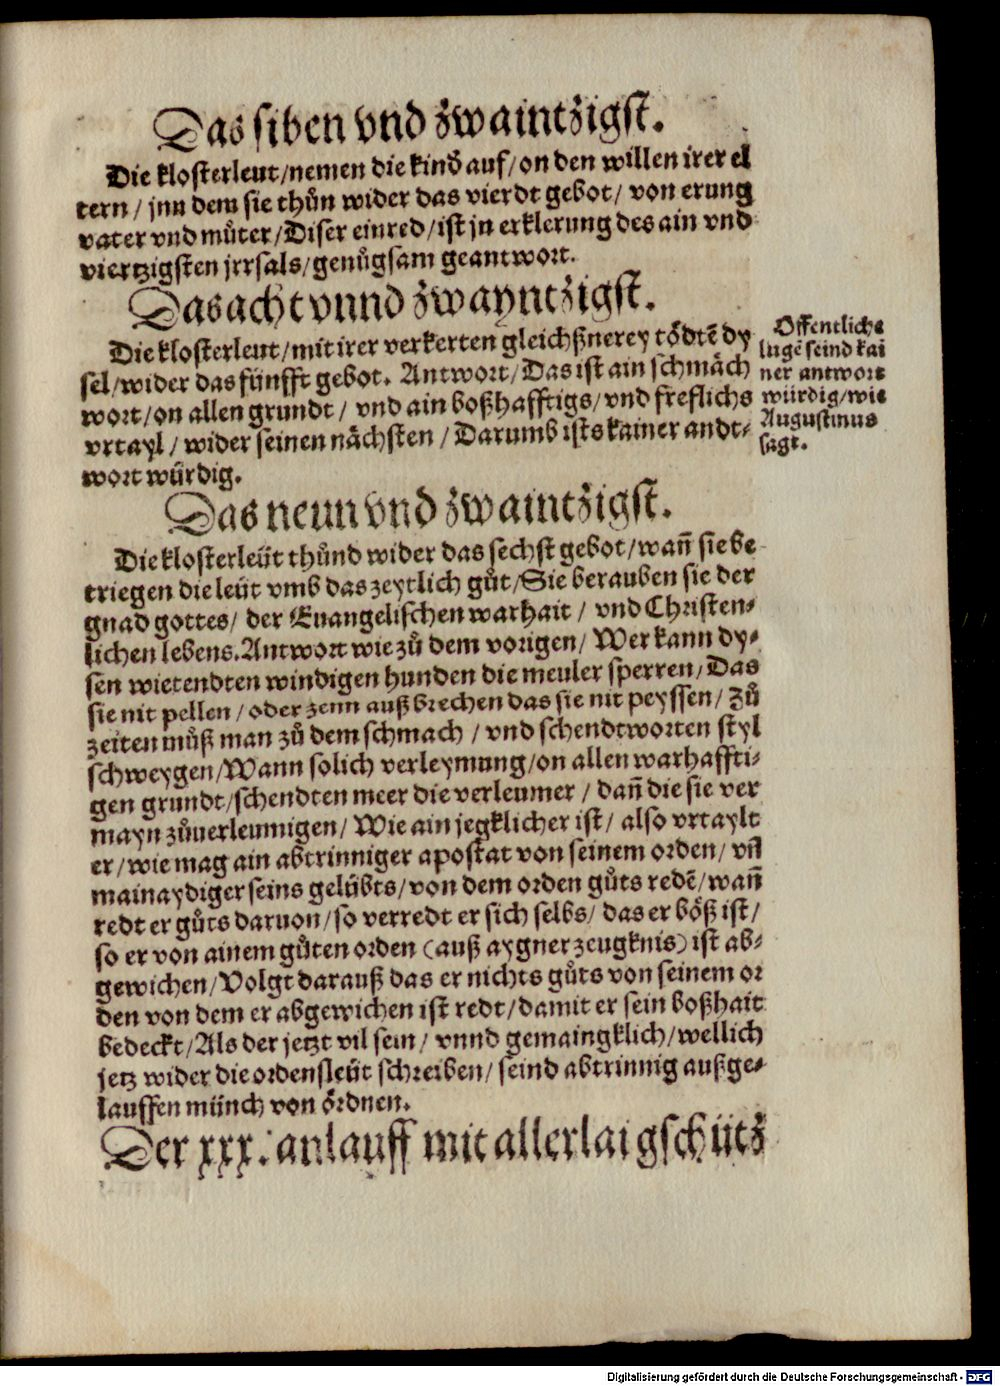 Das siben vnd zwaintzigst.
Die klosterleut/nemen die kind auf/on den willen irer el
tern/ jnn dem sie thůn wider das vierdt gebot/ von erung
vater vnd můter/Diser einred/ist jn erklerung des ain vnd
viertzigsten jrrsals/genůgsam geantwort.
Das acht vnnd zwayntzigst.
Die klosterleut/mit irer verkerten gleichßnerey tödtē dy
sel/wider das fünfft gebot. Antwort/Das ist ain schmäch
wort/on allen grundt/ vnd ain boßhafftigs/vnd freflichs
vrtayl/ wider seinen nächsten/ Darumb ists kainer andt-
wort würdig.
Offentliche
lugē seind kai
ner antwort
würdig/wie
Augustinus
sagt.
Das neun vnd zwaintzigst.
Die klosterleüt thůnd wider das sechst gebot/wañ sie be
triegen die leüt vmb das zeytlich gůt/Sie berauben sie der
gnad gottes/ der Euangelischen warhait/ vnd Christen-
lichen lebens.Antwort wie zů dem vorigen/ Wer kann dy-
sen wietendten windigen hunden die meuler sperren/Das
sie nit pellen/oder zenn auß brechen das sie nit peyssen/ Zů
zeiten můß man zů dem schmach/ vnd schendtworten styl
schweygen/Wann solich verleymung/on allen warhaffti-
gen grundt/schendten meer die verleumer/ dañ die sie ver
mayn zůuerleumigen/ Wie ain jegklicher ist/ also vrtaylt
er/wie mag ain abtrinniger apostat von seinem orden/ vñ
mainaydiger seins gelübts/von dem orden gůts redē/wañ
redt er gůts daruon/so verredt er sich selbs/ das er böß ist/
so er von ainem gůten orden (auß aygner zeugknis) ist ab-
gewichen/Volgt darauß das er nichts gůts von seinem or
den von dem er abgewichen ist redt/damit er sein boßhait
bedeckt/Als der jetzt vil sein/ vnnd gemaingklich/wellich
jetz wider die ordensleüt schreiben/ seind abtrinnig außge-
lauffen münch von ördnen.
Der xxx. anlauff mit allerlai gschütz
Digitalisierung gefördert durch die Deutsche Forschungsgemeinschaft - DFG